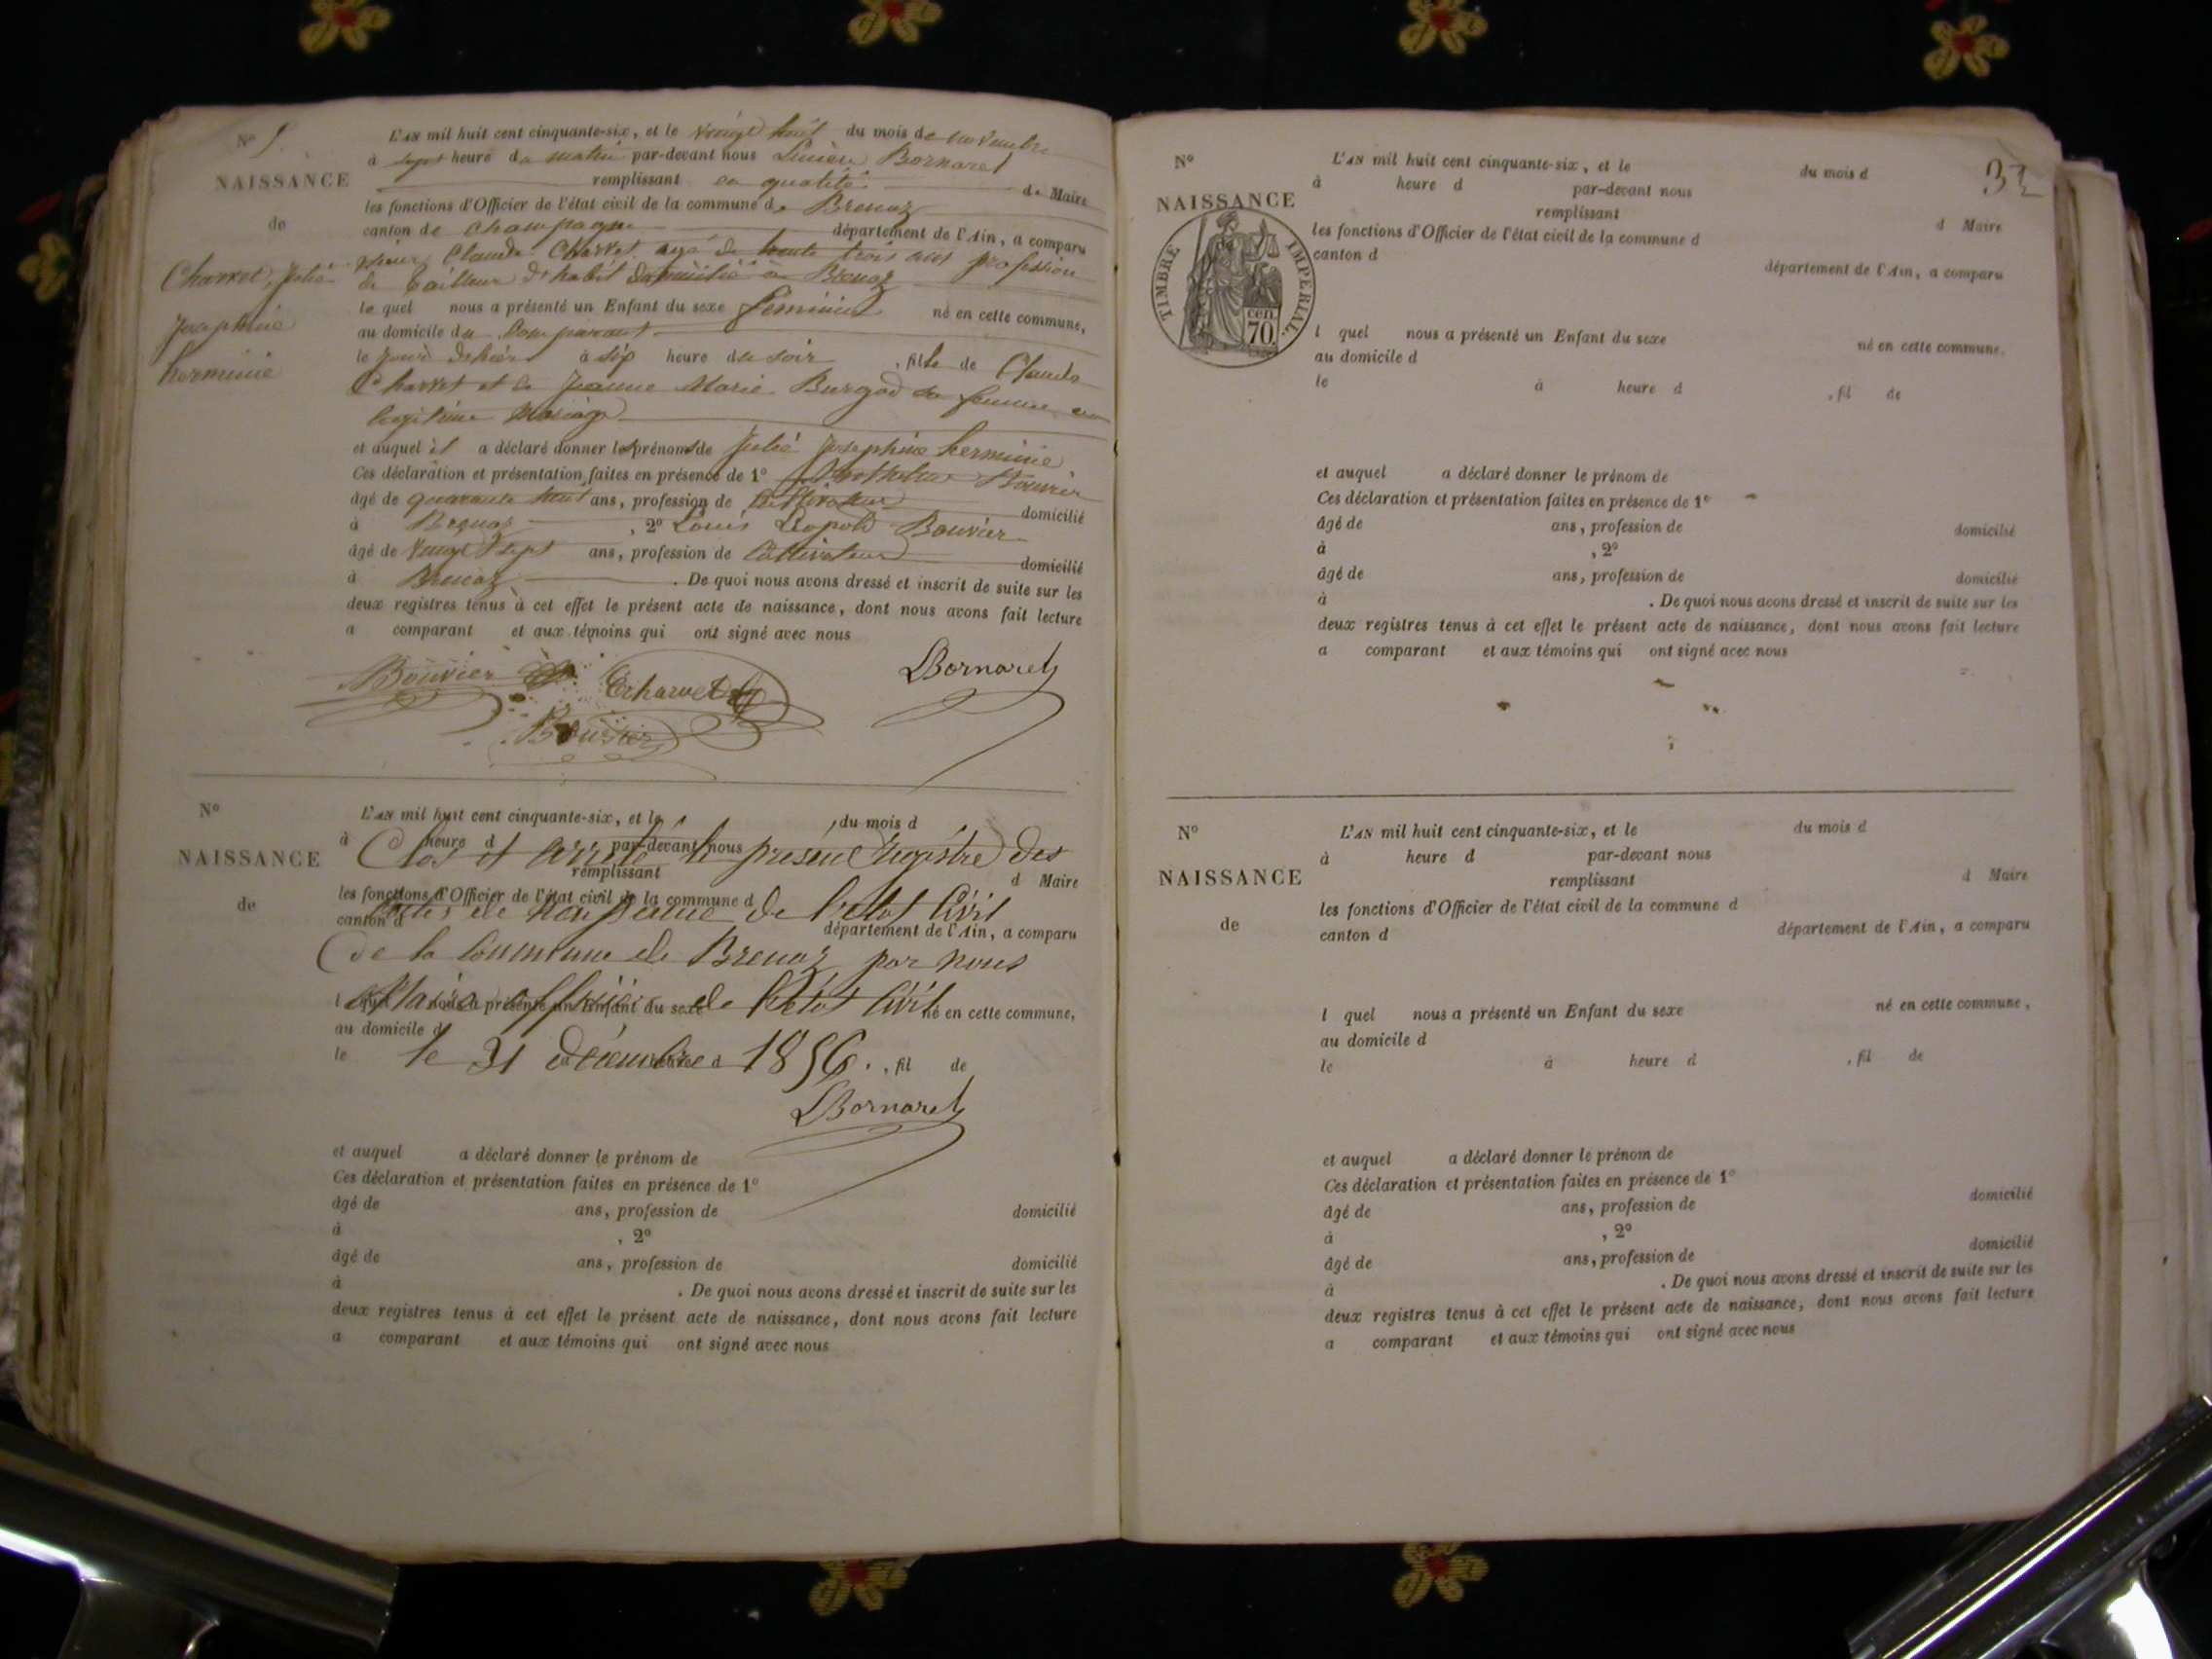 N° 9.
NAISSANCE
de
Charvet, Julie
Josephine
herminie
L'AN mil huit cent cinquante-six, et le vingt huit du mois de novembre
à sept heure du matin par-devant nous Lucien Bornaret
remplissant en qualité de Maire
les fonctions d'Officier de l'état civil de la commune de Brenaz
canton de Champagne département de l'Ain, a comparu
sieur Claude Charvet agé de trente trois ans profession
de tailleur d'habit domicilié à Brenaz
le quel nous a présenté un Enfant du sexe féminin né en cette commune,
au domicile du Comparant
le jour dehier à sip heure du soir , fille de Claude
Charvet et de Jeanne Marie Burgod sa femme en
legitime Mariage
et auquel il a déclaré donner les prénoms de Julie Josephine herminie
Ces déclaration et présentation faites en présence de 1° Bouvier
âgé de quarante huit ans, profession de Cultivateur domicilié
à Brenaz , 2° Louis Léopold Bouvier
âgé de vingt sept ans, profession de Cultivateur domicilié
à Brenaz . De quoi nous avons dressé et inscrit de suite sur les
deux registres tenus à cet effet le présent acte de naissance, dont nous avons fait lecture
a comparant et aux témoins qui ont signé avec nous
Bouvier Charvet LBornaret
Bouvier
N°
NAISSANCE
de
L'AN mil huit cent cinquante-six, et le du mois d
à heure d par-devant nous
Clos et arrêté le présent Registre des
remplissant d Maire
les fonctions d'Officier de l'état civil de la commune d
actes de Naissance de l'état Civil
canton d département de l'Ain, a comparu
de la Commune de Brenaz par nous
l quel nous a présenté un Enfant du sexe né en cette commune,
Maire officier de l'état Civil
au domicile d
le à heure d , fil de
le 31 décembre 1856.
LBornaret
et auquel a déclaré donner le prénom de
Ces déclaration et présentation faites en présence de 1°
âgé de ans, profession de domicilié
à , 2°
âgé de ans, profession de domicilié
à . De quoi nous avons dressé et inscrit de suite sur les
deux registres tenus à cet effet le présent acte de naissance, dont nous avons fait lecture
a comparant et aux témoins qui ont signé avec nous
32
N°
NAISSANCE
TIMBRE IMPERIAL.
cen.
70
L'AN mil huit cent cinquante-six, et le du mois d
à heure d par-devant nous
remplissant d Maire
les fonctions d'Officier de l'état civil de la commune d
canton d département de l'Ain, a comparu
l quel nous a présenté un Enfant du sexe né en cette commune,
au domicile d
le à heure d , fil de
et auquel a déclaré donner le prénom de
Ces déclaration et présentation faites en présence de 1°
âgé de ans, profession de domicilié
à , 2°
âgé de ans, profession de domicilié
à . De quoi nous avons dressé et inscrit de suite sur les
deux registres tenus à cet effet le présent acte de naissance, dont nous avons fait lecture
a comparant et aux témoins qui ont signé avec nous
N°
NAISSANCE
de
L'AN mil huit cent cinquante-six, et le du mois d
à heure d par-devant nous
remplissant d Maire
les fonctions d'Officier de l'état civil de la commune d
canton d département de l'Ain, a comparu
l quel nous a présenté un Enfant du sexe né en cette commune,
au domicile d
le à heure d , fil de
et auquel a déclaré donner le prénom de
Ces déclaration et présentation faites en présence de 1°
âgé de ans, profession de domicilié
à , 2°
âgé de ans, profession de domicilié
à . De quoi nous avons dressé et inscrit de suite sur les
deux registres tenus à cet effet le présent acte de naissance, dont nous avons fait lecture
a comparant et aux témoins qui ont signé avec nous